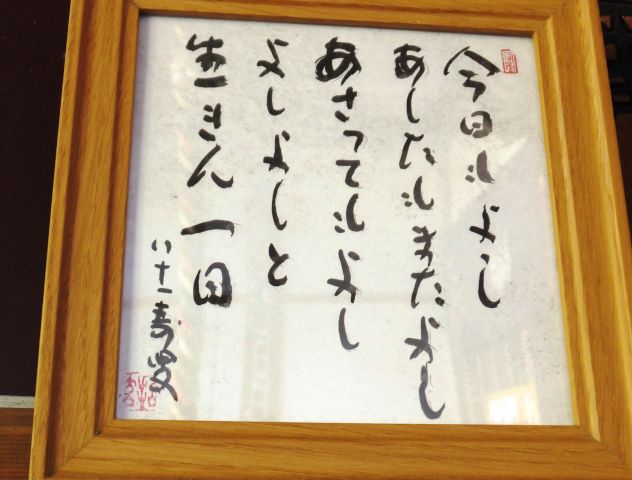 今日もよし
あしたもまたよし
あさってもよし
よしよしと
生きん一日
八十一寿叟